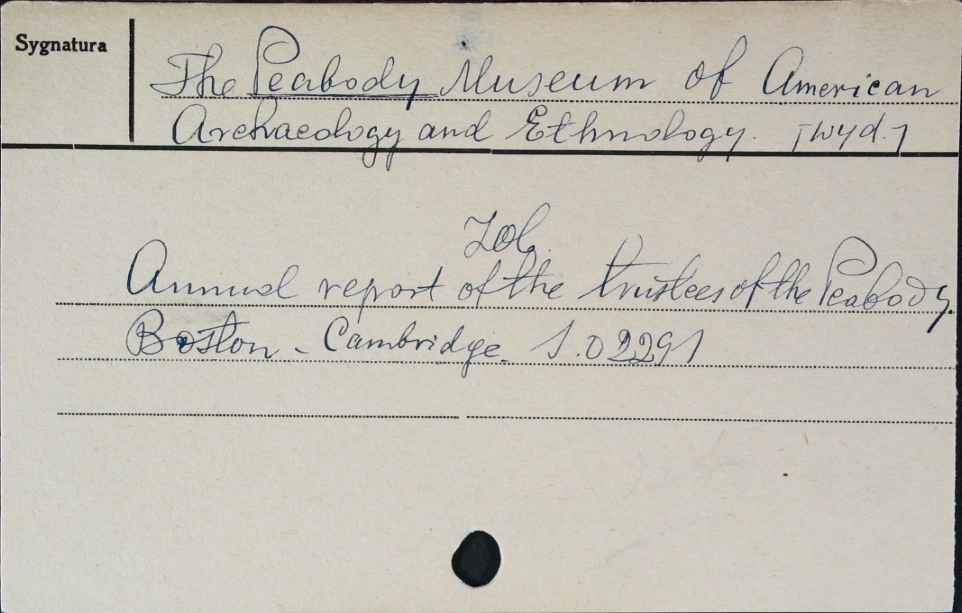 Sygnatura
The Peabody Museum of American
Archaeology and Ethnology. [wyd.]
Zob.
Annual report of the trustees of the Peabody.
Boston - Cambridge. S.02291